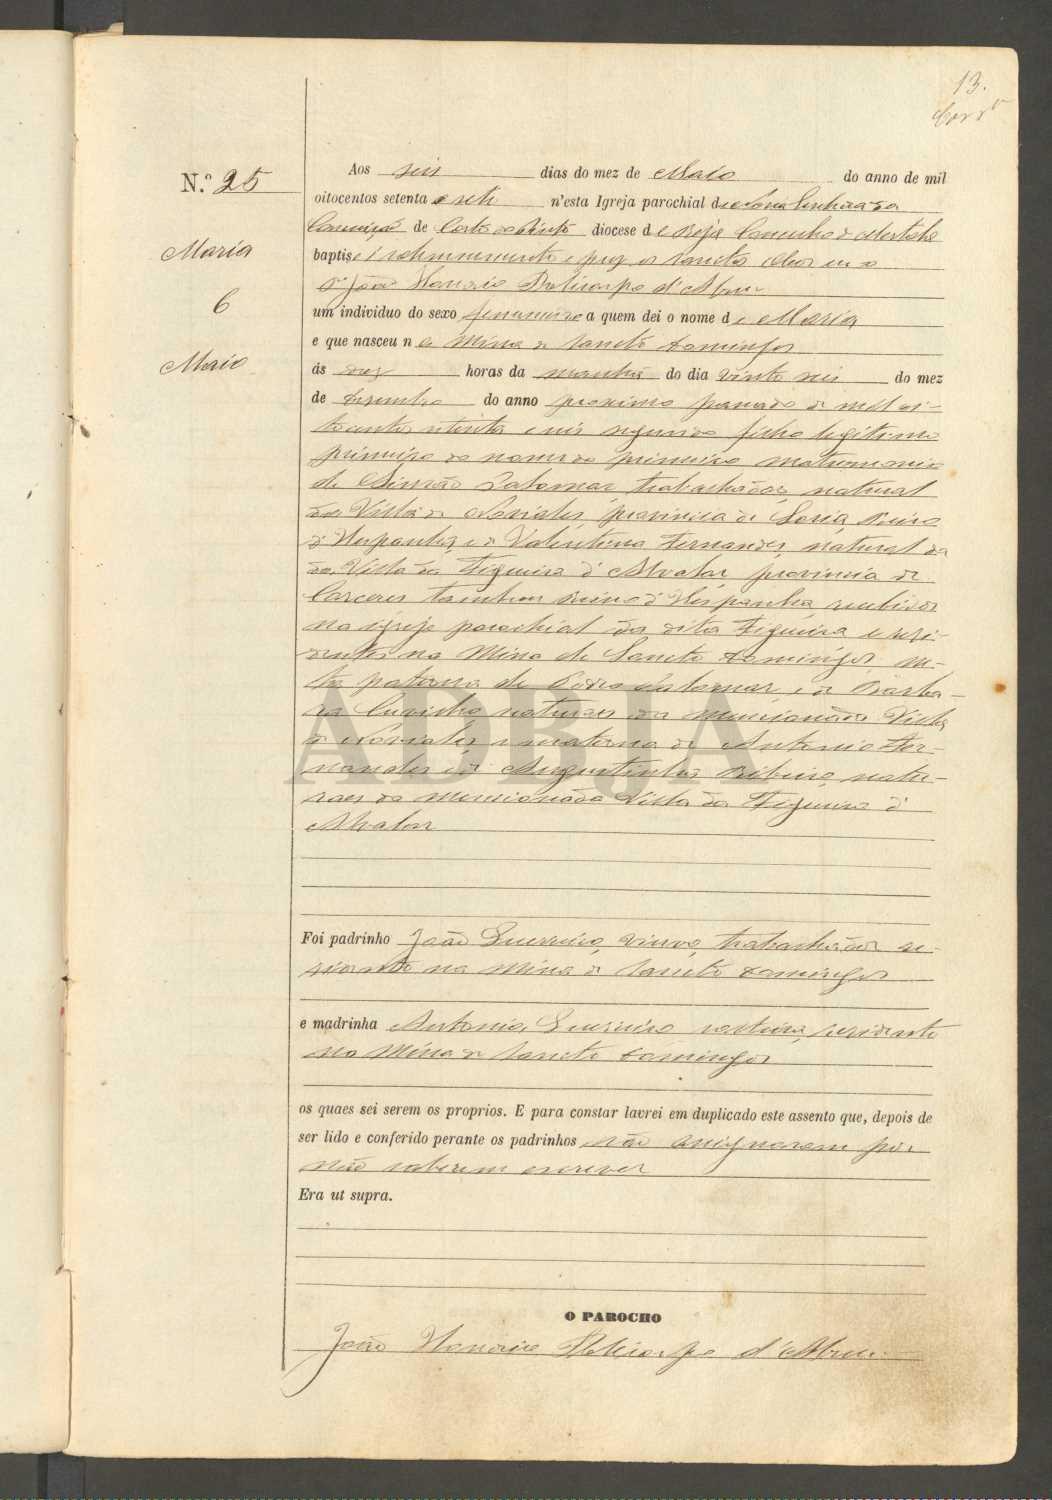 13.
N.º 25
Maria
6
Maio
Aos seis dias do mez de Maio do anno de mil
oitocentos setenta e sete n'esta Igreja parochial de Nossa Senhora da
Conceição de Corte do Pinto diocese de Beja Concelho de Mertola
baptisei solemnemente e puz os sanctos oleos eu o
P.e João Honorio Policarpo d'Abreu
um individuo do sexo femenino a quem dei o nome de Maria
e que nasceu na Mina de Sancto Domingos
ás dez horas da manhã do dia vinte seis do mez
de Dezembro do anno proximo passado de mil oi-
tocentos setenta e seis segundo filho legitimo
primeiro do nome do primeiro matrimonio
de Simão Palomar, trabalhador, natural
da Villa de Noviales, provincia de Soria, Reino
d'Hespanha, e de Valentina Fernandes, natural da
da Villa da Figueira d'Alvalar provincia de
Carceres tambem Reino d'Hespanha, recebidos
na igreja parochial da dita Figueira e resi-
dentes na Mina de Sancto Domingos, ne-
ta paterna de Pedro Palomar, e de Barba-
ra naturaes da mencionada Villa
de Noviales e materna de Antonio Fer-
nandes e de Augustinha Ribeiro, natu-
raes da mencionada Villa da Figueira d'
Alvalar
ADBJA
Foi padrinho João Guerreiro, viuvo, trabalhador re-
sidente na Mina de Sancto Domingos
e madrinha Antonia Guerreiro solteira, residente
na Mina de Sancto Domingos
os quaes sei serem os proprios. E para constar lavrei em duplicado este assento que, depois de
ser lido e conferido perante os padrinhos não assignaram por
não saberem escrever
Era ut supra.
O PAROCHO
João Honorio Policarpo d'Abreu